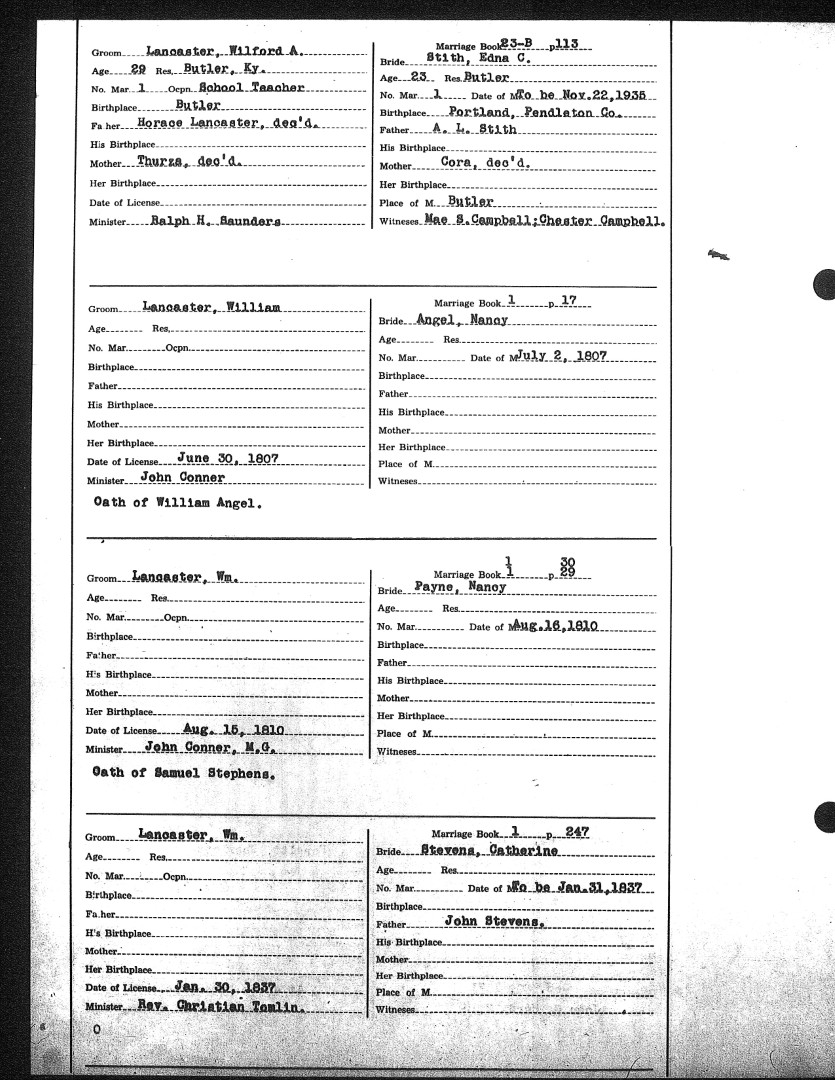 Groom Lancaster, Wilford A.
Age 29 Res. Butler, Ky.
No. Mar. 1 Ocpn. School Teacher
Birthplace Butler
Fa her Horace Lancaster, dec'd.
His Birthplace
Mother Thurza, dec'd.
Her Birthplace
Date of License
Minister Ralph H. Saunders
Marriage Book 23-B p 113
Bride Stith, Edna C.
Age 23 Res. Butler
No. Mar. 1 Date of M To be Nov.22,1935
Birthplace Portland, Pendleton Co.
Father A. L. Stith
His Birthplace
Mother Cora, dec'd.
Her Birthplace
Place of M. Butler
Witnesses Mae S.Campbell;Chester Campbell.
Groom Lancaster, William
Age Res.
No. Mar. Ocpn.
Birthplace
Father
His Birthplace
Mother
Her Birthplace
Date of License June 30, 1807
Minister John Conner
Oath of William Angel.
Marriage Book 1 p. 17
Bride Angel, Nancy
Age Res.
No. Mar. Date of M July 2, 1807
Birthplace
Father
His Birthplace
Mother
Her Birthplace
Place of M.
Witnesses
Groom Lancaster, Wm.
Age Res.
No. Mar. Ocpn.
Birthplace
Father
His Birthplace
Mother
Her Birthplace
Date of License Aug. 15, 1810
Minister John Conner, M.G.
Oath of Samuel Stephens.
1 30
Marriage Book 1 p. 29
Bride Payne, Nancy
Age Res.
No. Mar. Date of M Aug.16,1810
Birthplace
Father
His Birthplace
Mother
Her Birthplace
Place of M.
Witnesses
Groom Lancaster, Wm.
Age Res.
No. Mar. Ocpn.
Birthplace
Fa her
H's Birthplace
Mother
Her Birthplace
Date of License Jan. 30, 1837
Minister Rev. Christian Tomlin.
O
Marriage Book 1 p. 247
Bride Stevens, Catherine
Age Res.
No. Mar. Date of M To be Jan.31,1837
Birthplace
Father John Stevens.
His Birthplace
Mother
Her Birthplace
Place of M.
Witnesses